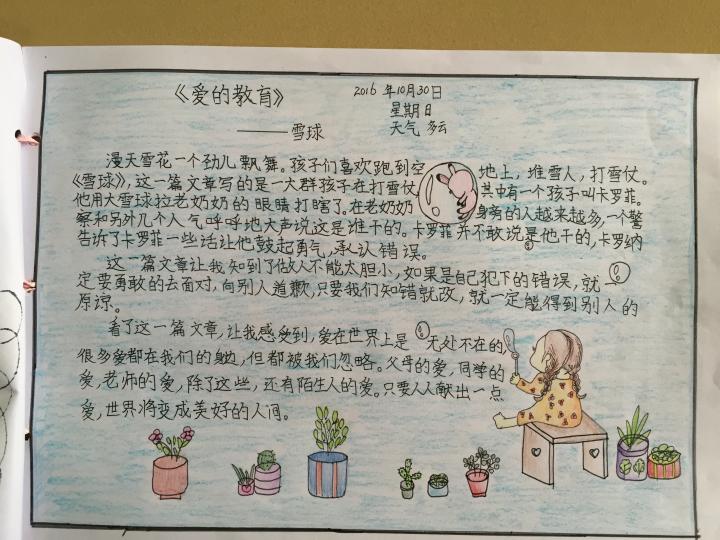 《爱的教育》 2016年10月30日
星期日
——雪球 天气 多云
漫天雪花一个劲儿飘舞。孩子们喜欢跑到空地上，堆雪人，打雪仗。
《雪球》，这一篇文章写的是一大群孩子在打雪仗，其中有一个孩子叫卡罗菲。
他用大雪球拉老奶奶的眼睛打瞎了。在老奶奶身旁的人越来越多，一个警
察和另外几个人气呼呼地大声说这是谁干的。卡罗菲并不敢说是他干的，卡罗纳
告诉了卡罗菲一些话让他鼓起勇气，承认错误。
这一篇文章让我知到了做人不能太胆小，如果是自己犯下的错误，就一
定要勇敢的去面对，向别人道歉，只要我们知错就改，就一定能得到别人的
原谅。
看了这一篇文章，让我感受到，爱在世界上是无处不在的，
很多爱都在我们的身边，但都被我们忽略。父母的爱，同学的
爱，老师的爱，除了这些，还有陌生人的爱。只要人人献出一点
爱，世界将变成美好的人间。